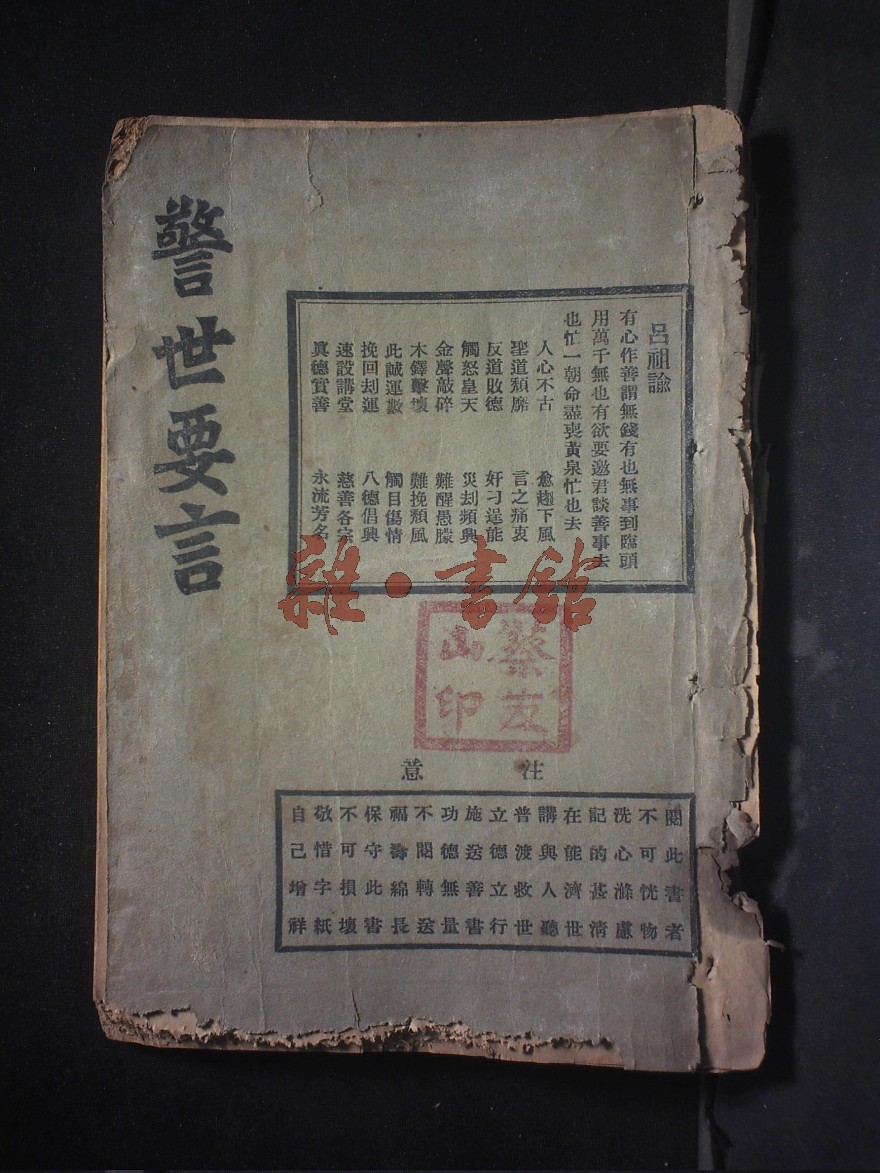 警世要言
呂祖諭
有心作善謂無錢有也無事到臨頭
用萬千無也有欲要邀君談善事去
也忙一朝命盡喪黃泉忙也去
人心不古 愈趨下風
聖道頽靡 言之痛衷
反道敗德 好刁逞能
觸怒皇天 災刦頻興
金聲敲碎 難醒愚朦
木鐸擊壞 難挽頽風
此誠運數 觸目傷情
挽回刦運 八德倡興
速設講堂 慈善各宗
眞德實善 永流芳名
雜·書館
蔡友
山印
注意
閱此書者
不可恍物
洗心滌慮
記的甚清
在能濟世
講與人聽
普渡救世
立德立行
施送善書
功德無量
不閱轉送
福壽綿長
保守此書
不可損壞
敬惜字紙
自己增祥